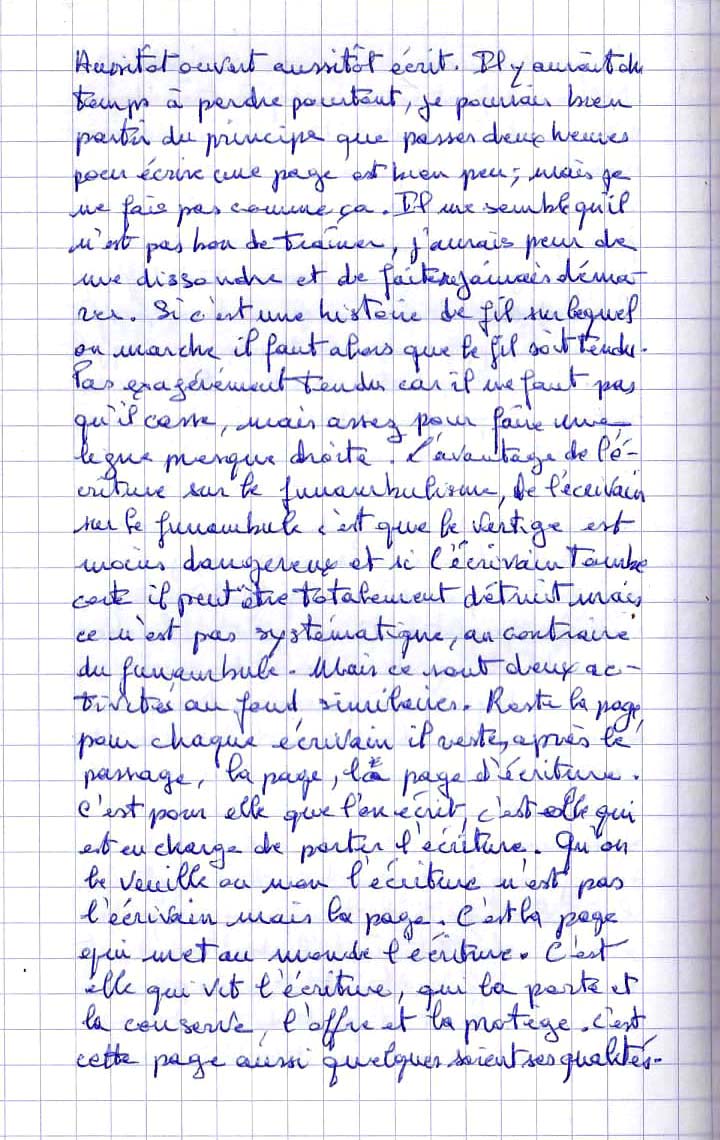 Aussitôt ouvert aussitôt écrit. Il y aurait du
temps à perdre pourtant, je pourrais bien
partir du principe que passer deux heures
pour écrire une page est bien peu; mais je
ne fais pas comme ça. Il me semble qu'il
n'est pas bon de traîner, j'aurais peur de
me dissoudre et de jamais déma-
rer. Si c'est une histoire de fil sur lequel
on marche il faut alors que le fil soit tendu.
Pas exagérément tendu car il ne faut pas
qu'il casse, mais assez pour faire une
ligne presque droite. L'avantage de l'é-
criture sur le funambulisme, de l'écrivain
sur le funambule c'est que le vertige est
moins dangereux et si l'écrivain tombe
certe il peut être totalement détruit mais
ce n'est pas systématique, au contraire
du funambule. Mais ce sont deux ac-
tivités au fond similaires. Reste la page,
pour chaque écrivain il reste, après le
passage, la page, la page d'écriture.
C'est pour elle que l'on écrit, c'est elle qui
est en charge de porter l'écriture. Qu'on
le veuille ou non l'écriture n'est pas
l'écrivain mais la page. C'est la page
qui met au monde l'écriture. C'est
elle qui vit l'écriture, qui la porte et
la conserve, l'offre et la protège. C'est
cette page aussi quelques soient ses qualités.